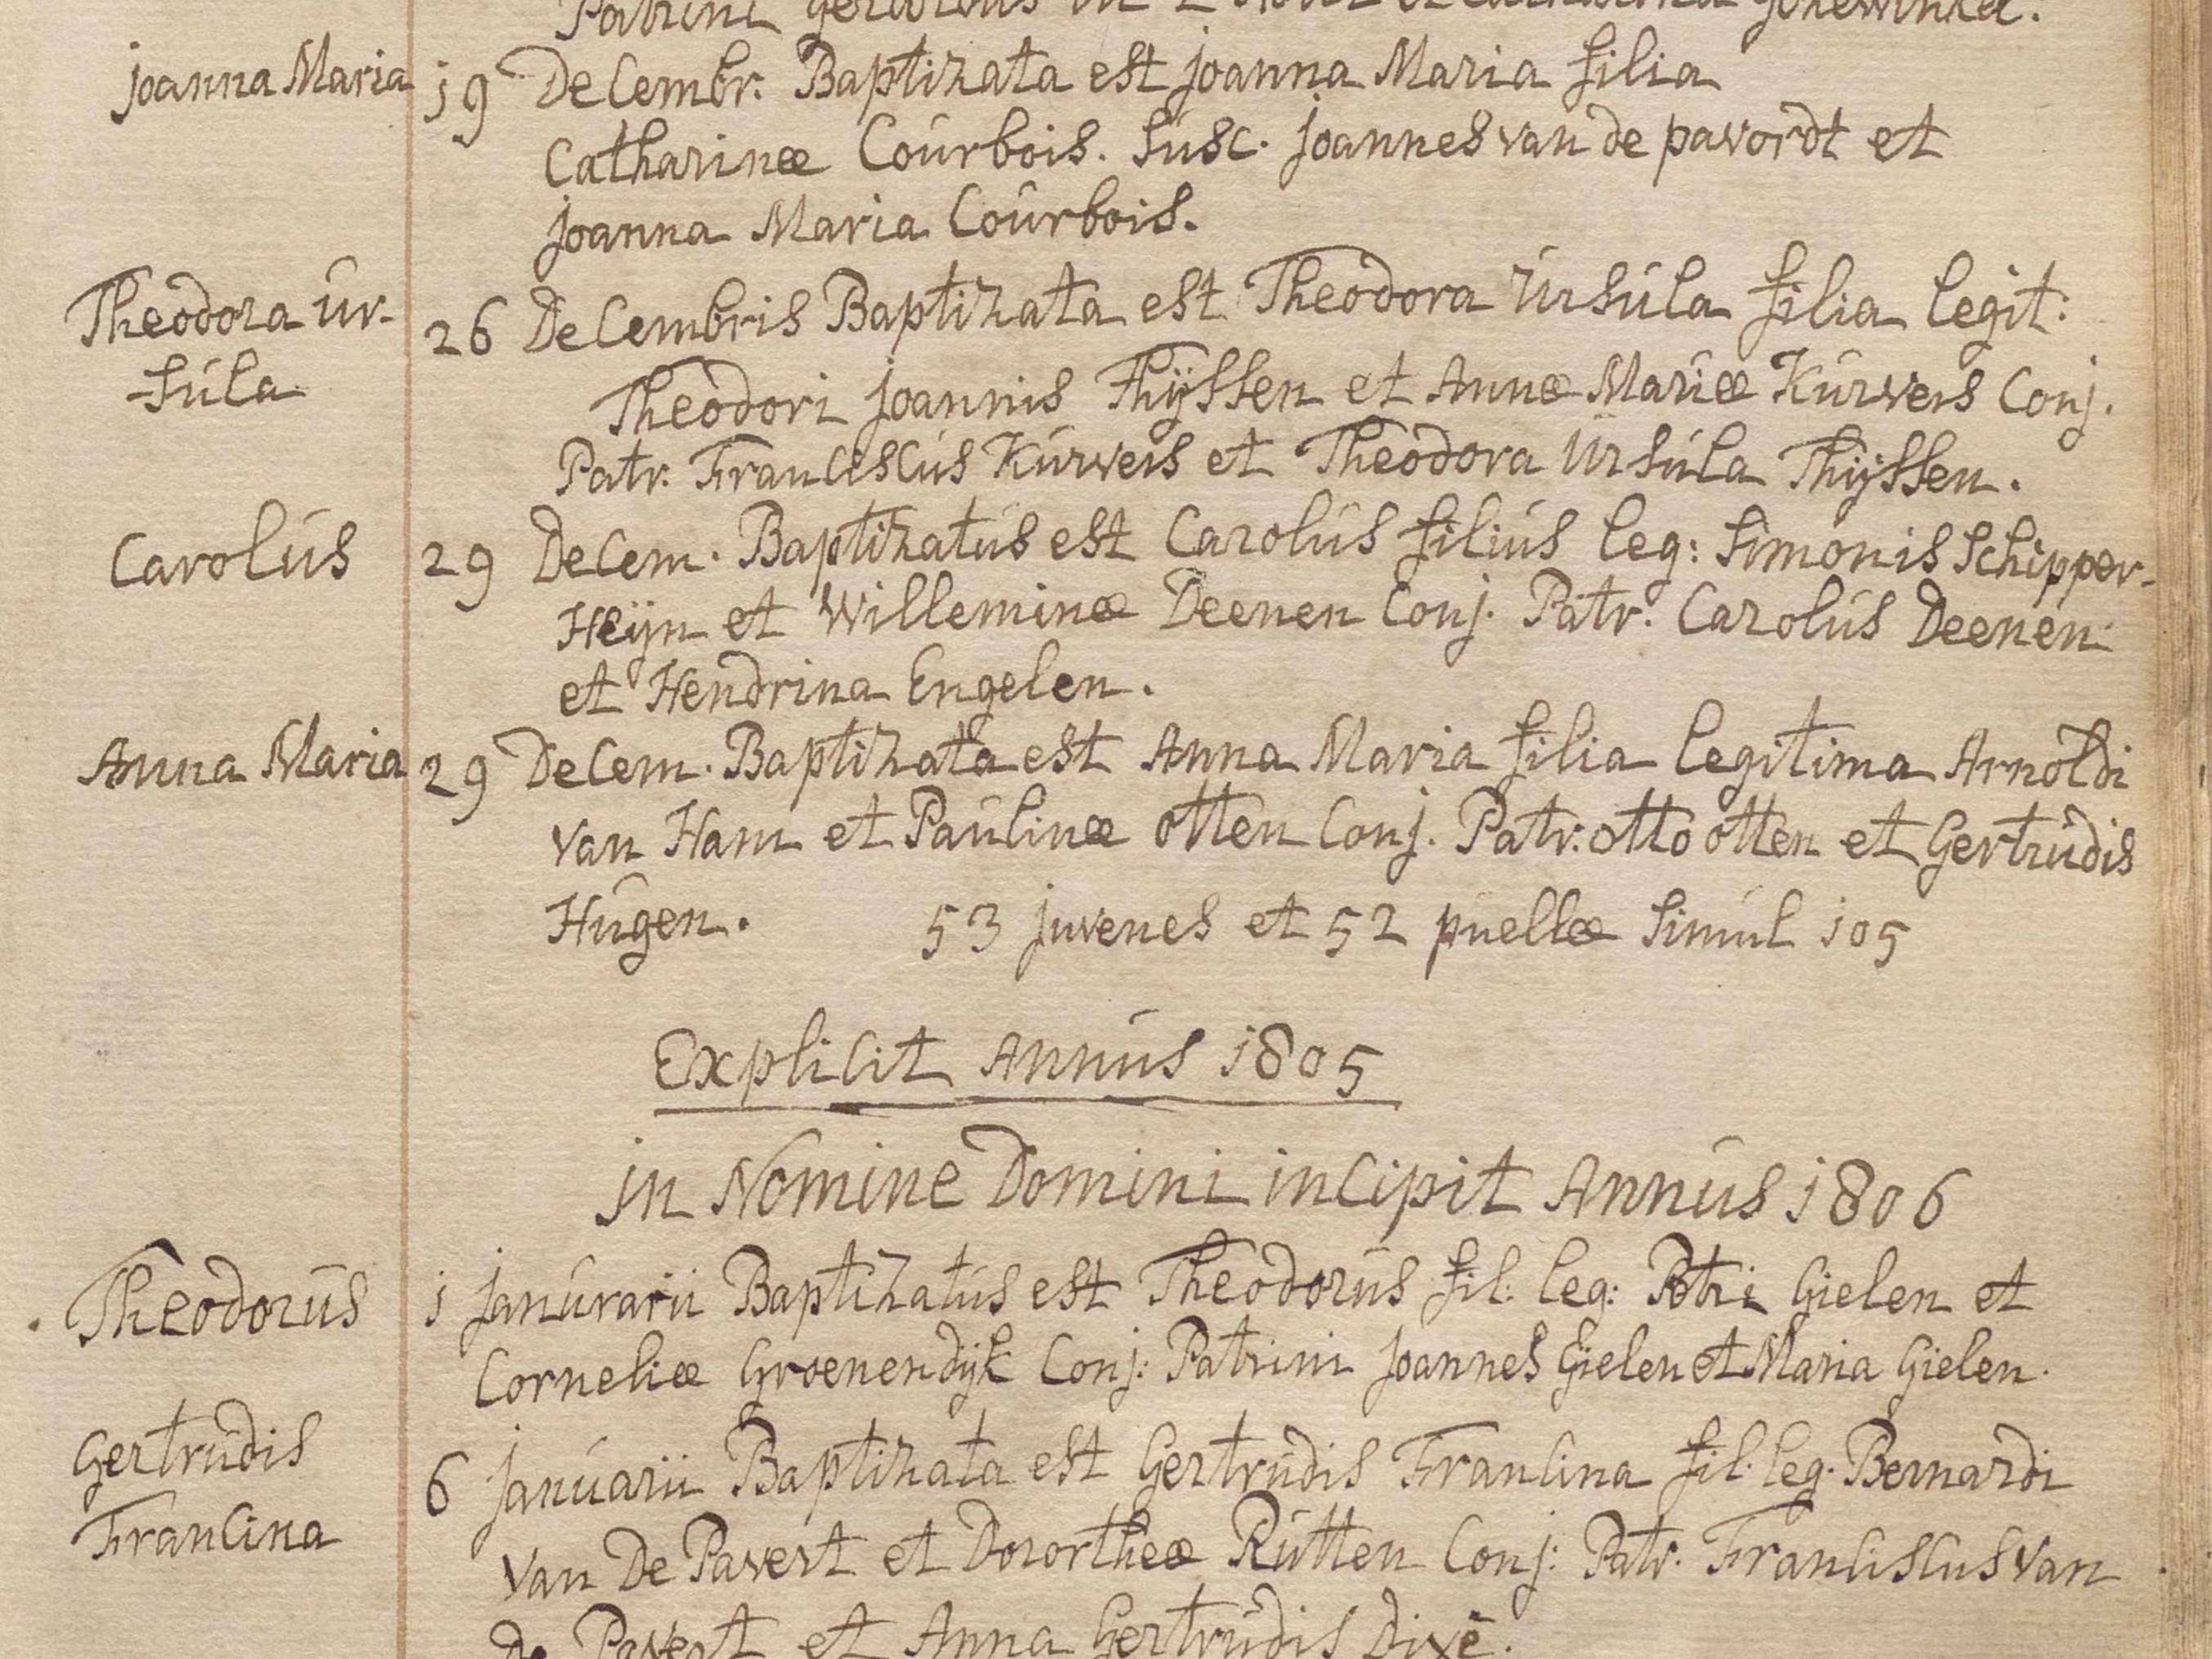 Patrini
Joanna Maria 19 Decembr. Baptizata est Joanna Maria filia
Catharinæ Courbois. Susc. Joannes van de pavordt et
Joanna Maria Courbois.
Theodora Ur- 26 Decembris Baptizata est Theodora Ursula filia legit:
-sula Theodori Joannis Thÿssen et Annæ Mariæ Kurvers Conj.
Patr. Franciscus Kurvers et Theodora Ursula Thÿssen.
Carolus 29 Decem. Baptizatus est Carolus filius leg: Simonis Schipper-
Heÿn et Willeminæ Deenen Conj. Patr. Carolus Deenen
et Hendrina Engelen.
Anna Maria 29 Decem. Baptizata est Anna Maria filia legitima Arnoldi
van Ham et Paulinæ Otten Conj. Patr. Otto Otten et Gertrudis
Hugen. 53 juvenes et 52 puellæ simul 105
Explicit Annus 1805
In Nomine Domini incipit Annus 1806
Theodorus 1 Janurarii Baptizatus est Theodorus fil: leg: Petri Gielen et
Corneliæ Groenendÿk Conj: Patrini Joannes Gielen et Maria Gielen.
Gertrudis 6 Januarii Baptizata est Gertrudis Francina fil. leg. Bernardi
Francina van De Pavert et Dorortheæ Rutten Conj: Patr. Franciscus van
de Pavert et Anna Gertrudis